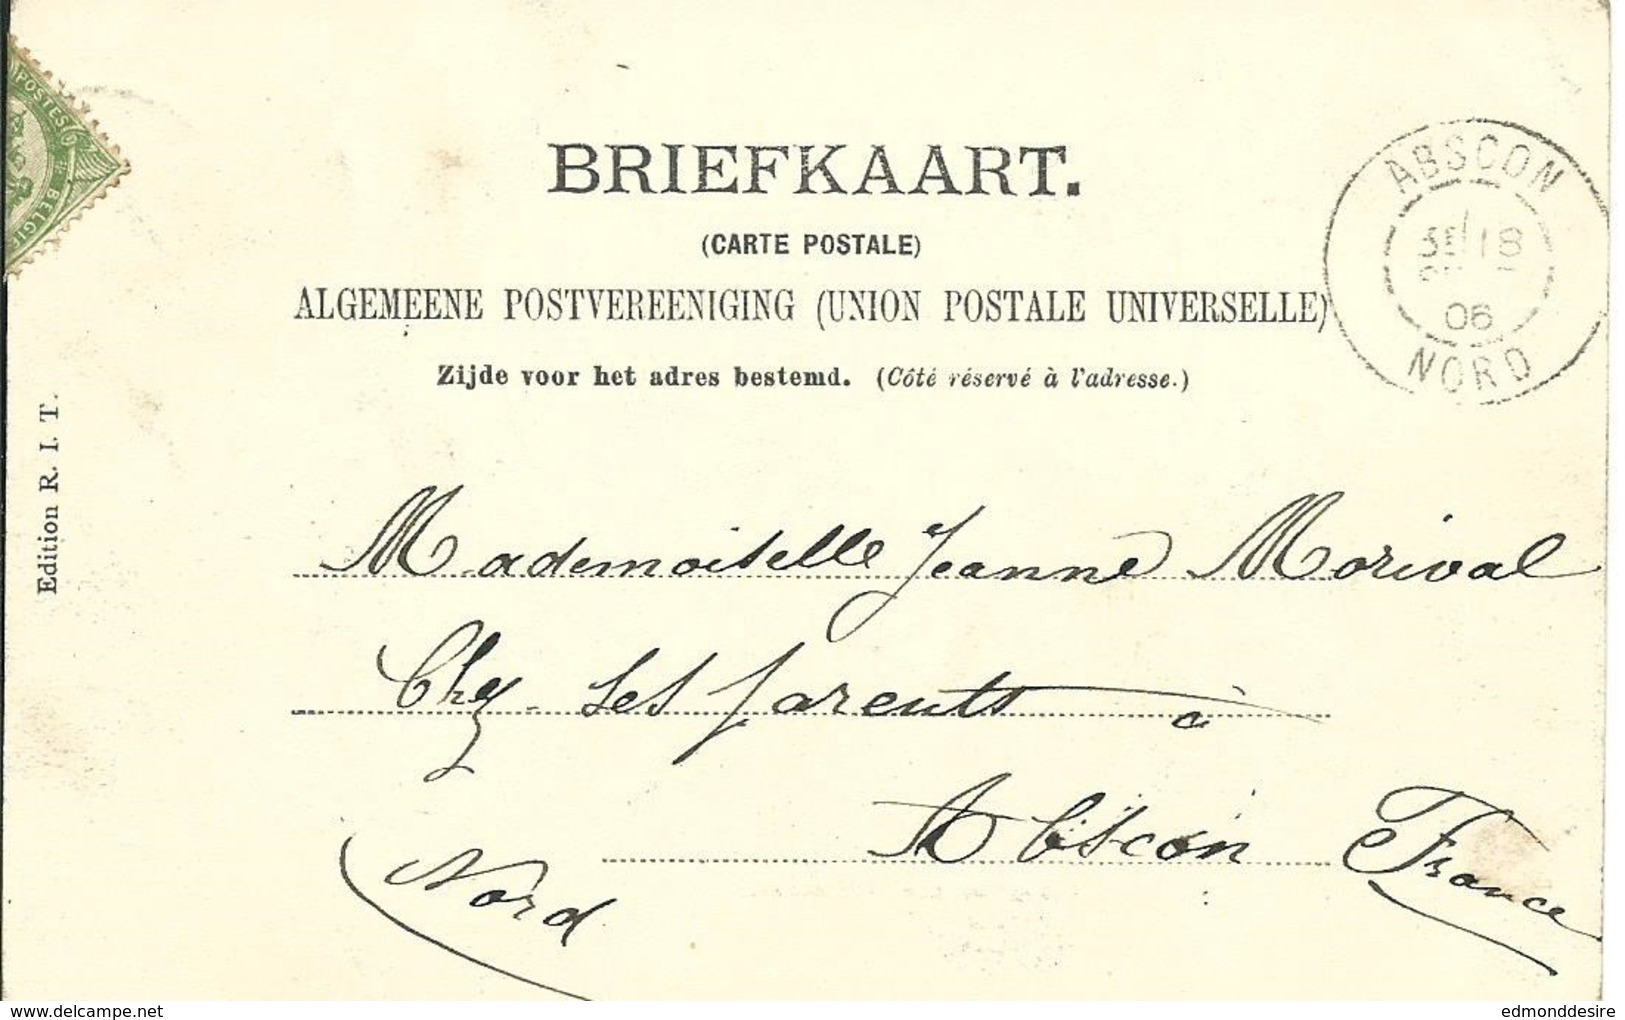 BRIEFKAART.
(CARTE POSTALE)
ALGEMEENE POSTVEREENIGING (UNION POSTALE UNIVERSELLE)
Zijde voor het adres bestemd. (Côté réservé à l'adresse.)
ABSCON
18
06
NORD
POSTES
BELGIE
Edition R. I. T.
Mademoiselle Jeanne Morival
Chez ses parents à
Abscon France
Nord
delcampe.net
edmonddesire